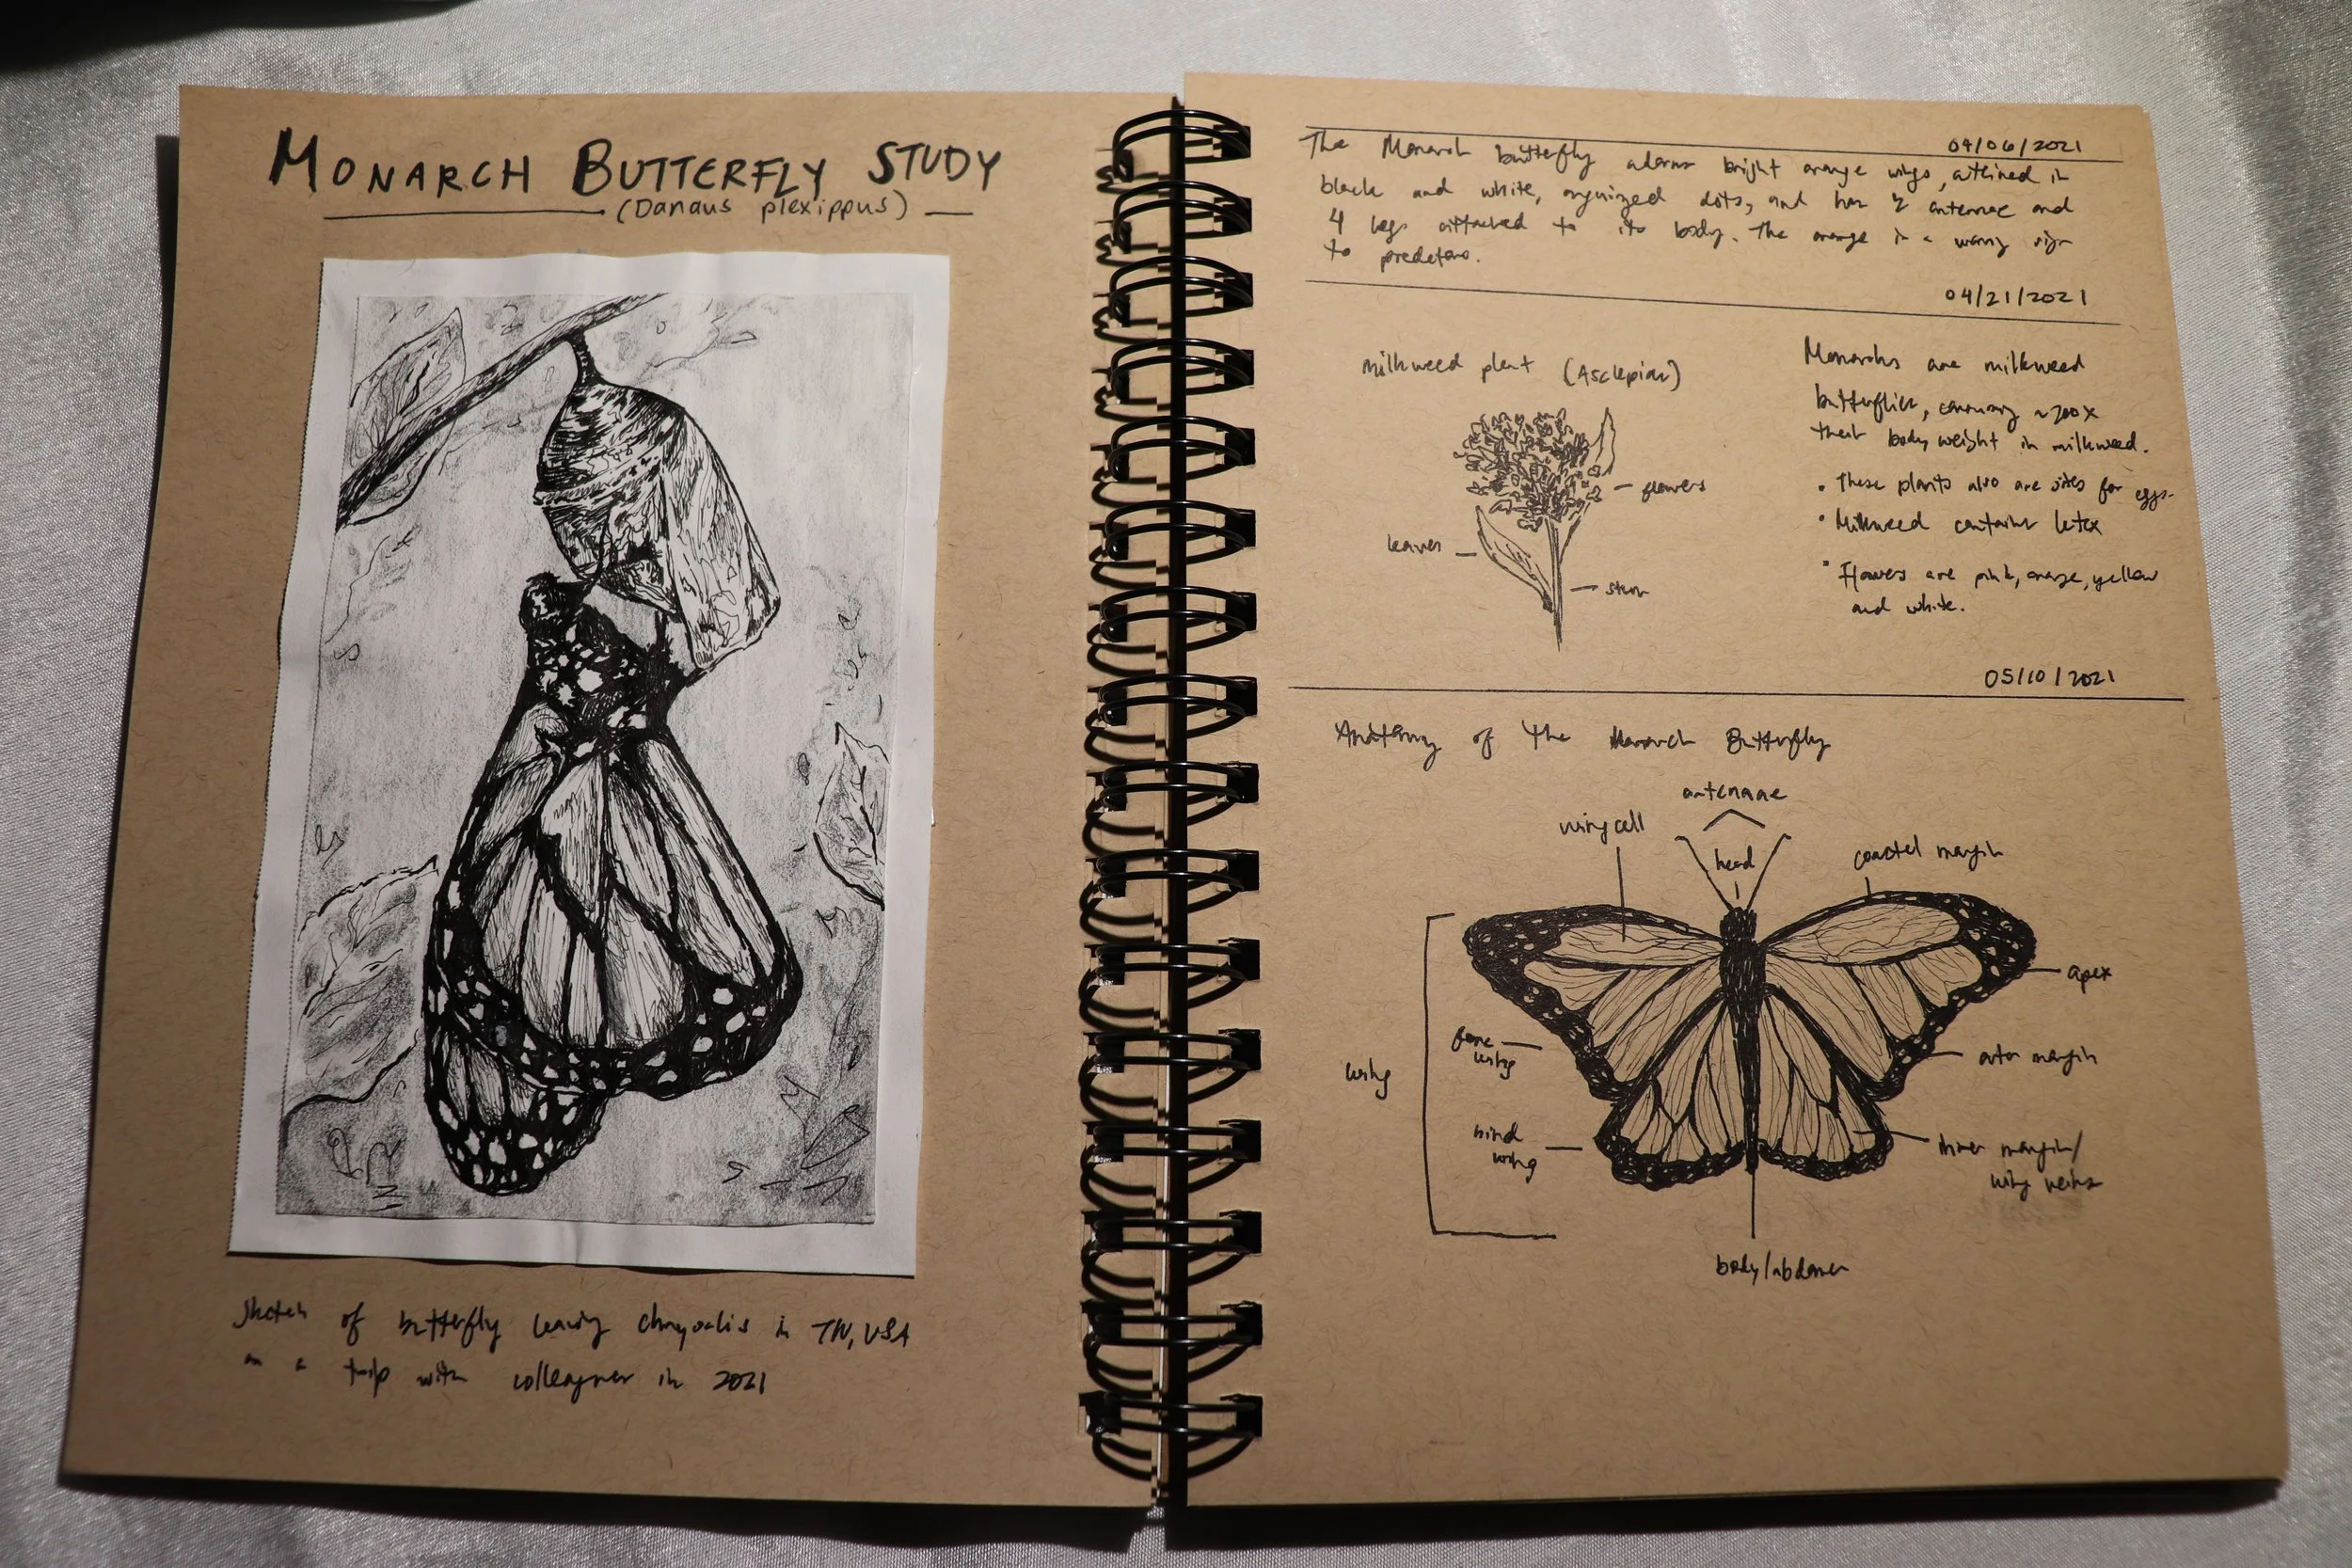 MONARCH BUTTERFLY STUDY
(Danaus plexippus)
Sketch of butterfly leaving chrysalis in TN, USA
on a trip with colleagues in 2021
04/06/2021
The Monarch butterfly adorns bright orange wings, outlined in
black and white, organized dots, and has 2 antennae and
4 legs attached to its body. The orange is a warning sign
to predators.
04/21/2021
milkweed plant (Asclepias)
flowers
leaves
stem
Monarchs are milkweed
butterflies, consuming ~200x
their body weight in milkweed.
• These plants also are sites for eggs.
• Milkweed contains latex
• Flowers are pink, orange, yellow
and white.
05/10/2021
Anatomy of the Monarch Butterfly
antennae
wing cell
head
coastal margin
apex
fore
wing
outer margin
wing
hind
wing
inner margin/
wing veins
body/abdomen